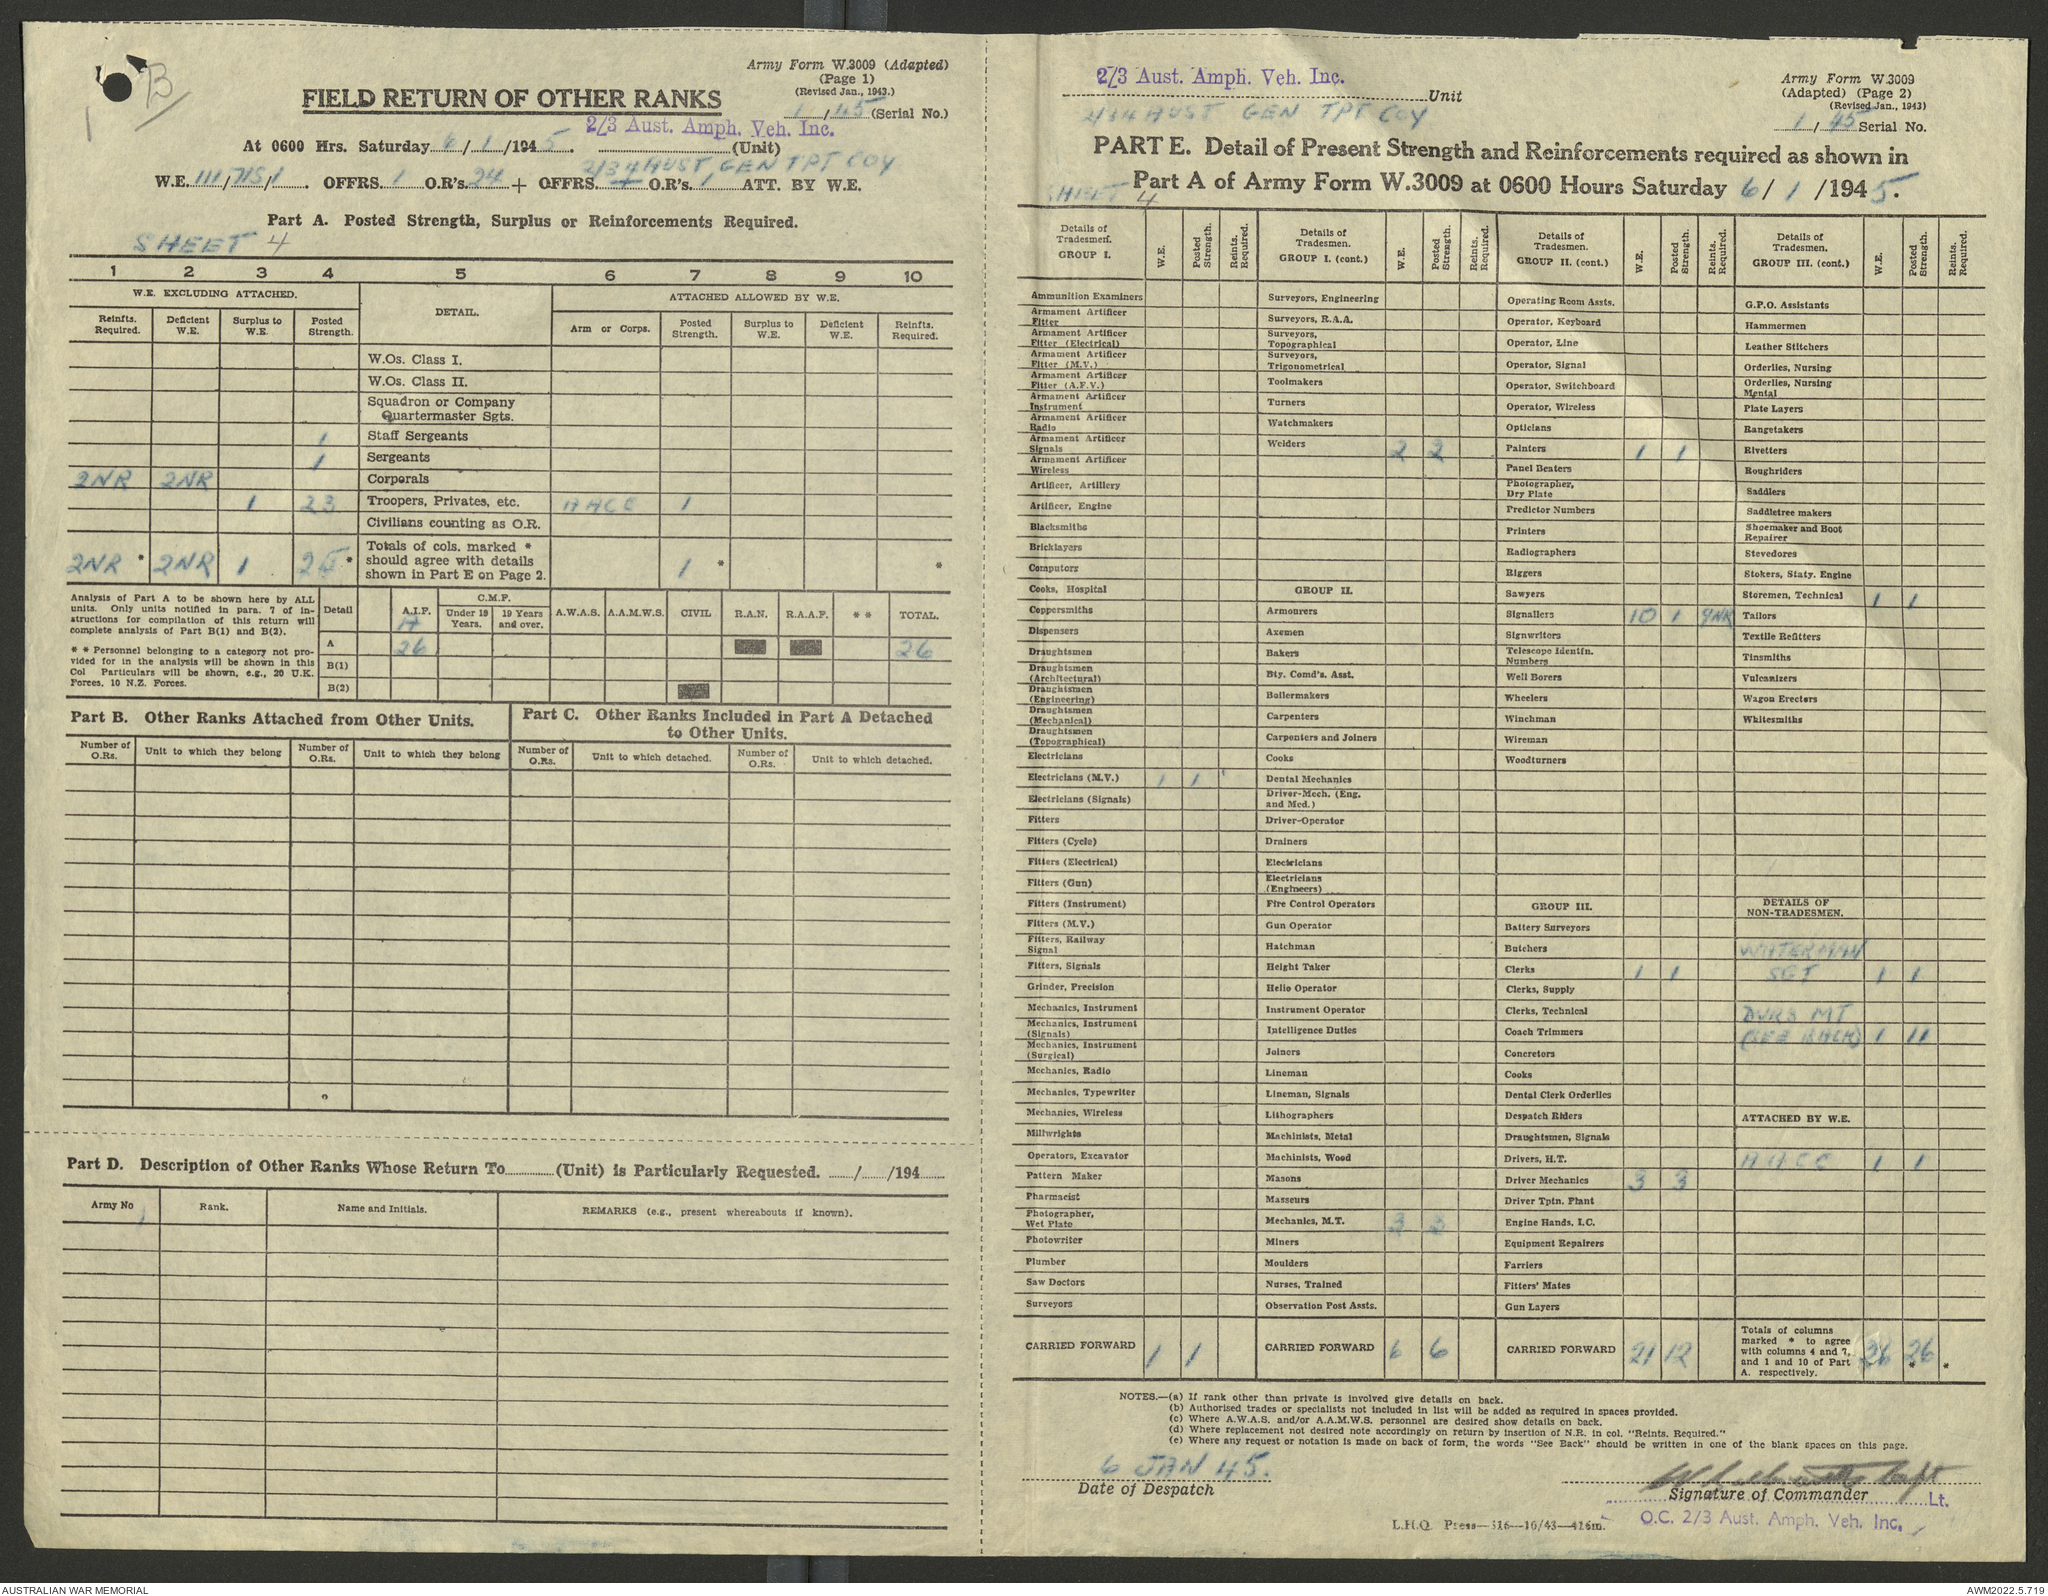 1 B
Army Form W.3009 (Adapted)
(Page 1)
(Revised Jan., 1943.)
FIELD RETURN OF OTHER RANKS
1/45 (Serial No.)
2/3 Aust. Amph. Veh. Inc.
At 0600 Hrs. Saturday 6/1/1945. (Unit)
2/34 AUST, GEN TPT COY
W.E. 111/715/1. OFFRS. 1 O.R's. 24 + OFFRS. O.R's. 1 ATT. BY W.E.
Part A. Posted Strength, Surplus or Reinforcements Required.
SHEET 4
1 2 3 4 5 6 7 8 9 10
W.E. EXCLUDING ATTACHED. DETAIL. ATTACHED ALLOWED BY W.E.
Reinfts. Required. Deficient W.E. Surplus to W.E. Posted Strength. Arm or Corps. Posted Strength. Surplus to W.E. Deficient W.E. Reinfts. Required.
W.Os. Class I.
W.Os. Class II.
Squadron or Company
Quartermaster Sgts.
1 Staff Sergeants
1 Sergeants
2NR 2NR Corporals
1 23 Troopers, Privates, etc. AACC 1
Civilians counting as O.R.
2NR * 2NR 1 25 * Totals of cols. marked * should agree with details shown in Part E on Page 2. 1 * *
Analysis of Part A to be shown here by ALL
units. Only units notified in para. 7 of in-
structions for compilation of this return will
complete analysis of Part B(1) and B(2).
* * Personnel belonging to a category not pro-
vided for in the analysis will be shown in this
Col Particulars will be shown, e.g., 20 U.K.
Forces, 10 N.Z. Forces.
Detail A.I.F. C.M.F. Under 19 Years. 19 Years and over. A.W.A.S. A.A.M.W.S. CIVIL R.A.N. R.A.A.F. * * TOTAL.
A 26 26
B(1)
B(2)
Part B. Other Ranks Attached from Other Units.
Part C. Other Ranks Included in Part A Detached
to Other Units.
Number of O.Rs. Unit to which they belong Number of O.Rs. Unit to which they belong Number of O.Rs. Unit to which detached. Number of O.Rs. Unit to which detached.
Part D. Description of Other Ranks Whose Return To (Unit) is Particularly Requested. / /194
Army No Rank. Name and Initials. REMARKS (e.g., present whereabouts if known).
2/3 Aust. Amph. Veh. Inc.
Unit
2/34 AUST GEN TPT COY
Army Form W.3009
(Adapted) (Page 2)
(Revised Jan., 1943)
1/45 Serial No.
PART E. Detail of Present Strength and Reinforcements required as shown in
Part A of Army Form W.3009 at 0600 Hours Saturday 6/1/1945.
SHEET 4
Details of Tradesmen. GROUP I. W.E. Posted Strength. Reints. Required.
Ammunition Examiners
Armament Artificer Fitter
Armament Artificer Fitter (Electrical)
Armament Artificer Fitter (M.V.)
Armament Artificer Fitter (A.F.V.)
Armament Artificer Instrument
Armament Artificer Radio
Armament Artificer Signals
Armament Artificer Wireless
Artificer, Artillery
Artificer, Engine
Blacksmiths
Bricklayers
Computors
Cooks, Hospital
Coppersmiths
Dispensers
Draughtsmen
Draughtsmen (Architectural)
Draughtsmen (Engineering)
Draughtsmen (Mechanical)
Draughtsmen (Topographical)
Electricians
Electricians (M.V.) 1 1
Electricians (Signals)
Fitters
Fitters (Cycle)
Fitters (Electrical)
Fitters (Gun)
Fitters (Instrument)
Fitters (M.V.)
Fitters, Railway Signal
Fitters, Signals
Grinder, Precision
Mechanics, Instrument
Mechanics, Instrument (Signals)
Mechanics, Instrument (Surgical)
Mechanics, Radio
Mechanics, Typewriter
Mechanics, Wireless
Millwrights
Operators, Excavator
Pattern Maker
Pharmacist
Photographer, Wet Plate
Photowriter
Plumber
Saw Doctors
Surveyors
CARRIED FORWARD 1 1
Details of Tradesmen. GROUP I. (cont.) W.E. Posted Strength. Reints. Required.
Surveyors, Engineering
Surveyors, R.A.A.
Surveyors, Topographical
Surveyors, Trigonometrical
Toolmakers
Turners
Watchmakers
Welders 2 2
GROUP II.
Armourers
Axemen
Bakers
Bty. Comd's. Asst.
Boilermakers
Carpenters
Carpenters and Joiners
Cooks
Dental Mechanics
Driver-Mech. (Eng. and Med.)
Driver-Operator
Drainers
Electricians
Electricians (Engineers)
Fire Control Operators
Gun Operator
Hatchman
Height Taker
Helio Operator
Instrument Operator
Intelligence Duties
Joiners
Lineman
Lineman, Signals
Lithographers
Machinists, Metal
Machinists, Wood
Masons
Masseurs
Mechanics, M.T. 3 3
Miners
Moulders
Nurses, Trained
Observation Post Assts.
CARRIED FORWARD 6 6
Details of Tradesmen. GROUP II. (cont.) W.E. Posted Strength. Reints. Required.
Operating Room Assts.
Operator, Keyboard
Operator, Line
Operator, Signal
Operator, Switchboard
Operator, Wireless
Opticians
Painters 1 1
Panel Beaters
Photographer, Dry Plate
Predictor Numbers
Printers
Radiographers
Riggers
Sawyers
Signallers 10 1 9NR
Signwriters
Telescope Identfn. Numbers
Well Borers
Wheelers
Winchman
Wireman
Woodturners
GROUP III.
Battery Surveyors
Butchers
Clerks 1 1
Clerks, Supply
Clerks, Technical
Coach Trimmers
Concretors
Cooks
Dental Clerk Orderlies
Despatch Riders
Draughtsmen, Signals
Drivers, H.T.
Driver Mechanics 3 3
Driver Tptn. Plant
Engine Hands, I.C.
Equipment Repairers
Farriers
Fitters' Mates
Gun Layers
CARRIED FORWARD 21 12
Details of Tradesmen. GROUP III. (cont.) W.E. Posted Strength. Reints. Required.
G.P.O. Assistants
Hammermen
Leather Stitchers
Orderlies, Nursing
Orderlies, Nursing Mental
Plate Layers
Rangetakers
Rivetters
Roughriders
Saddlers
Saddletree makers
Shoemaker and Boot Repairer
Stevedores
Stokers, Staty. Engine
Storemen, Technical 1 1
Tailors
Textile Refitters
Tinsmiths
Vulcanizers
Wagon Erectors
Whitesmiths
DETAILS OF
NON-TRADESMEN.
WATERMAN
SGT 1 1
DVRS MT
(SEE BACK) 1 11
ATTACHED BY W.E.
AACC 1 1
Totals of columns marked * to agree with columns 4 and 7, and 1 and 10 of Part A. respectively. 26 26 * *
NOTES.—(a) If rank other than private is involved give details on back.
(b) Authorised trades or specialists not included in list will be added as required in spaces provided.
(c) Where A.W.A.S. and/or A.A.M.W.S. personnel are desired show details on back.
(d) Where replacement not desired note accordingly on return by insertion of N.R. in col. "Reints. Required."
(e) Where any request or notation is made on back of form, the words "See Back" should be written in one of the blank spaces on this page.
6 JAN 45.
Date of Despatch
Capt
Signature of Commander Lt.
L.H.Q. Press—316—10/43—416m.
O.C. 2/3 Aust. Amph. Veh. Inc.
AUSTRALIAN WAR MEMORIAL
AWM2022.5.719